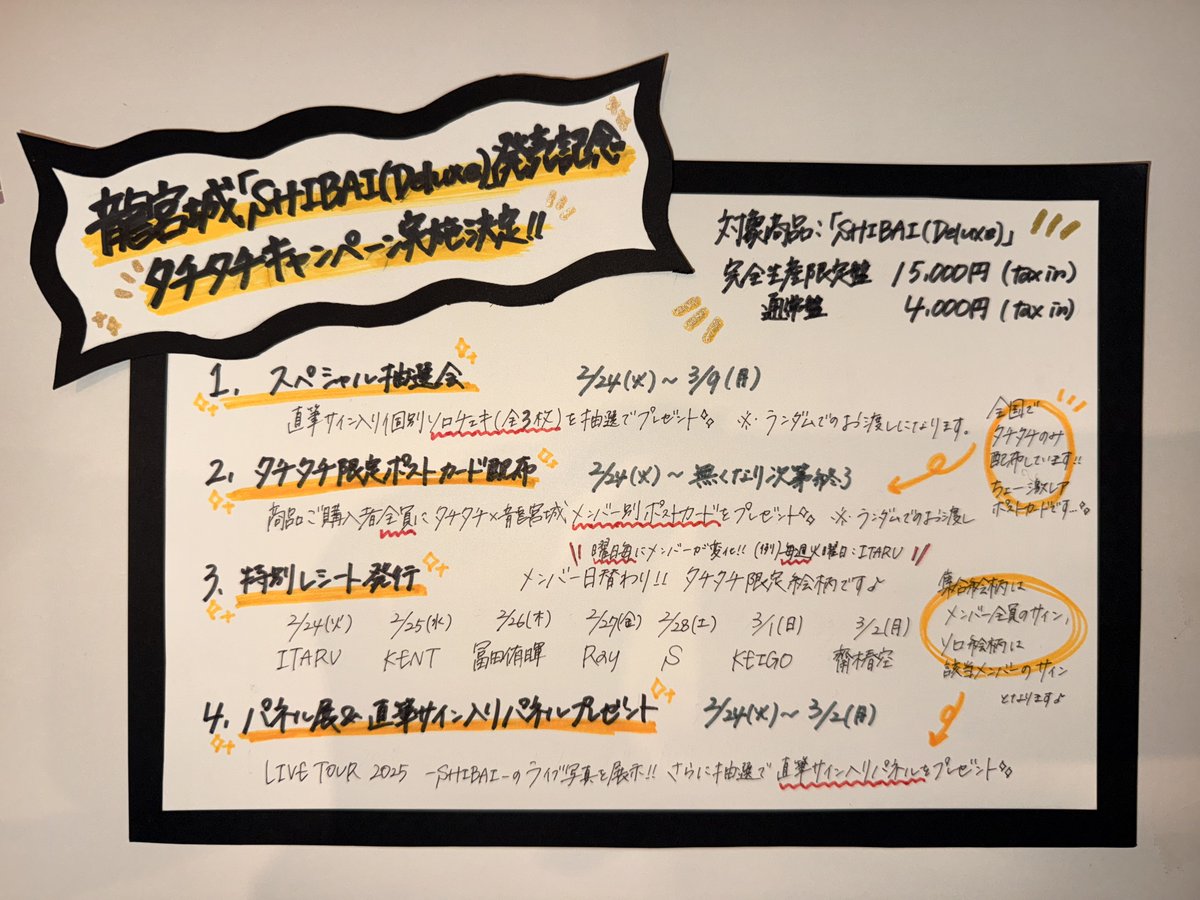 龍宮城「SHIBAI(Deluxe)」発売記念
タチタチキャンペーン実施決定!!
対象商品:「SHIBAI(Deluxe)」
完全生産限定盤 15,000円 (tax in)
通常盤 4,000円 (tax in)
1. スペシャル抽選会 2/24(火)~3/9(月)
直筆サイン入り個別ソロチェキ(全3枚)を抽選でプレゼント ※ランダムでのお渡しになります。
2. タチタチ限定ポストカード配布 2/24(火)~無くなり次第終了
商品ご購入者全員にタチタチ×龍宮城メンバー別ポストカードをプレゼント ※ランダムでのお渡し
全国で
タチタチのみ
配布しています!!
ちょー激レア
ポストカードです...
曜日毎にメンバーが変化!! (例)毎週火曜日:ITARU
3. 特別レシート発行 メンバー日替わり!! タチタチ限定絵柄です♪
2/24(火) 2/25(水) 2/26(木) 2/27(金) 2/28(土) 3/1(日) 3/2(月)
ITARU KENT 冨田侑暉 Ray S KEIGO 齋木春空
集合絵柄は
メンバー全員のサイン、
ソロ絵柄は
該当メンバーのサイン
となります♪
4. パネル展&直筆サイン入りパネルプレゼント 2/24(火)~3/2(月)
LIVE TOUR 2025 -SHIBAI-のライブ写真を展示!! さらに抽選で直筆サイン入りパネルをプレゼント